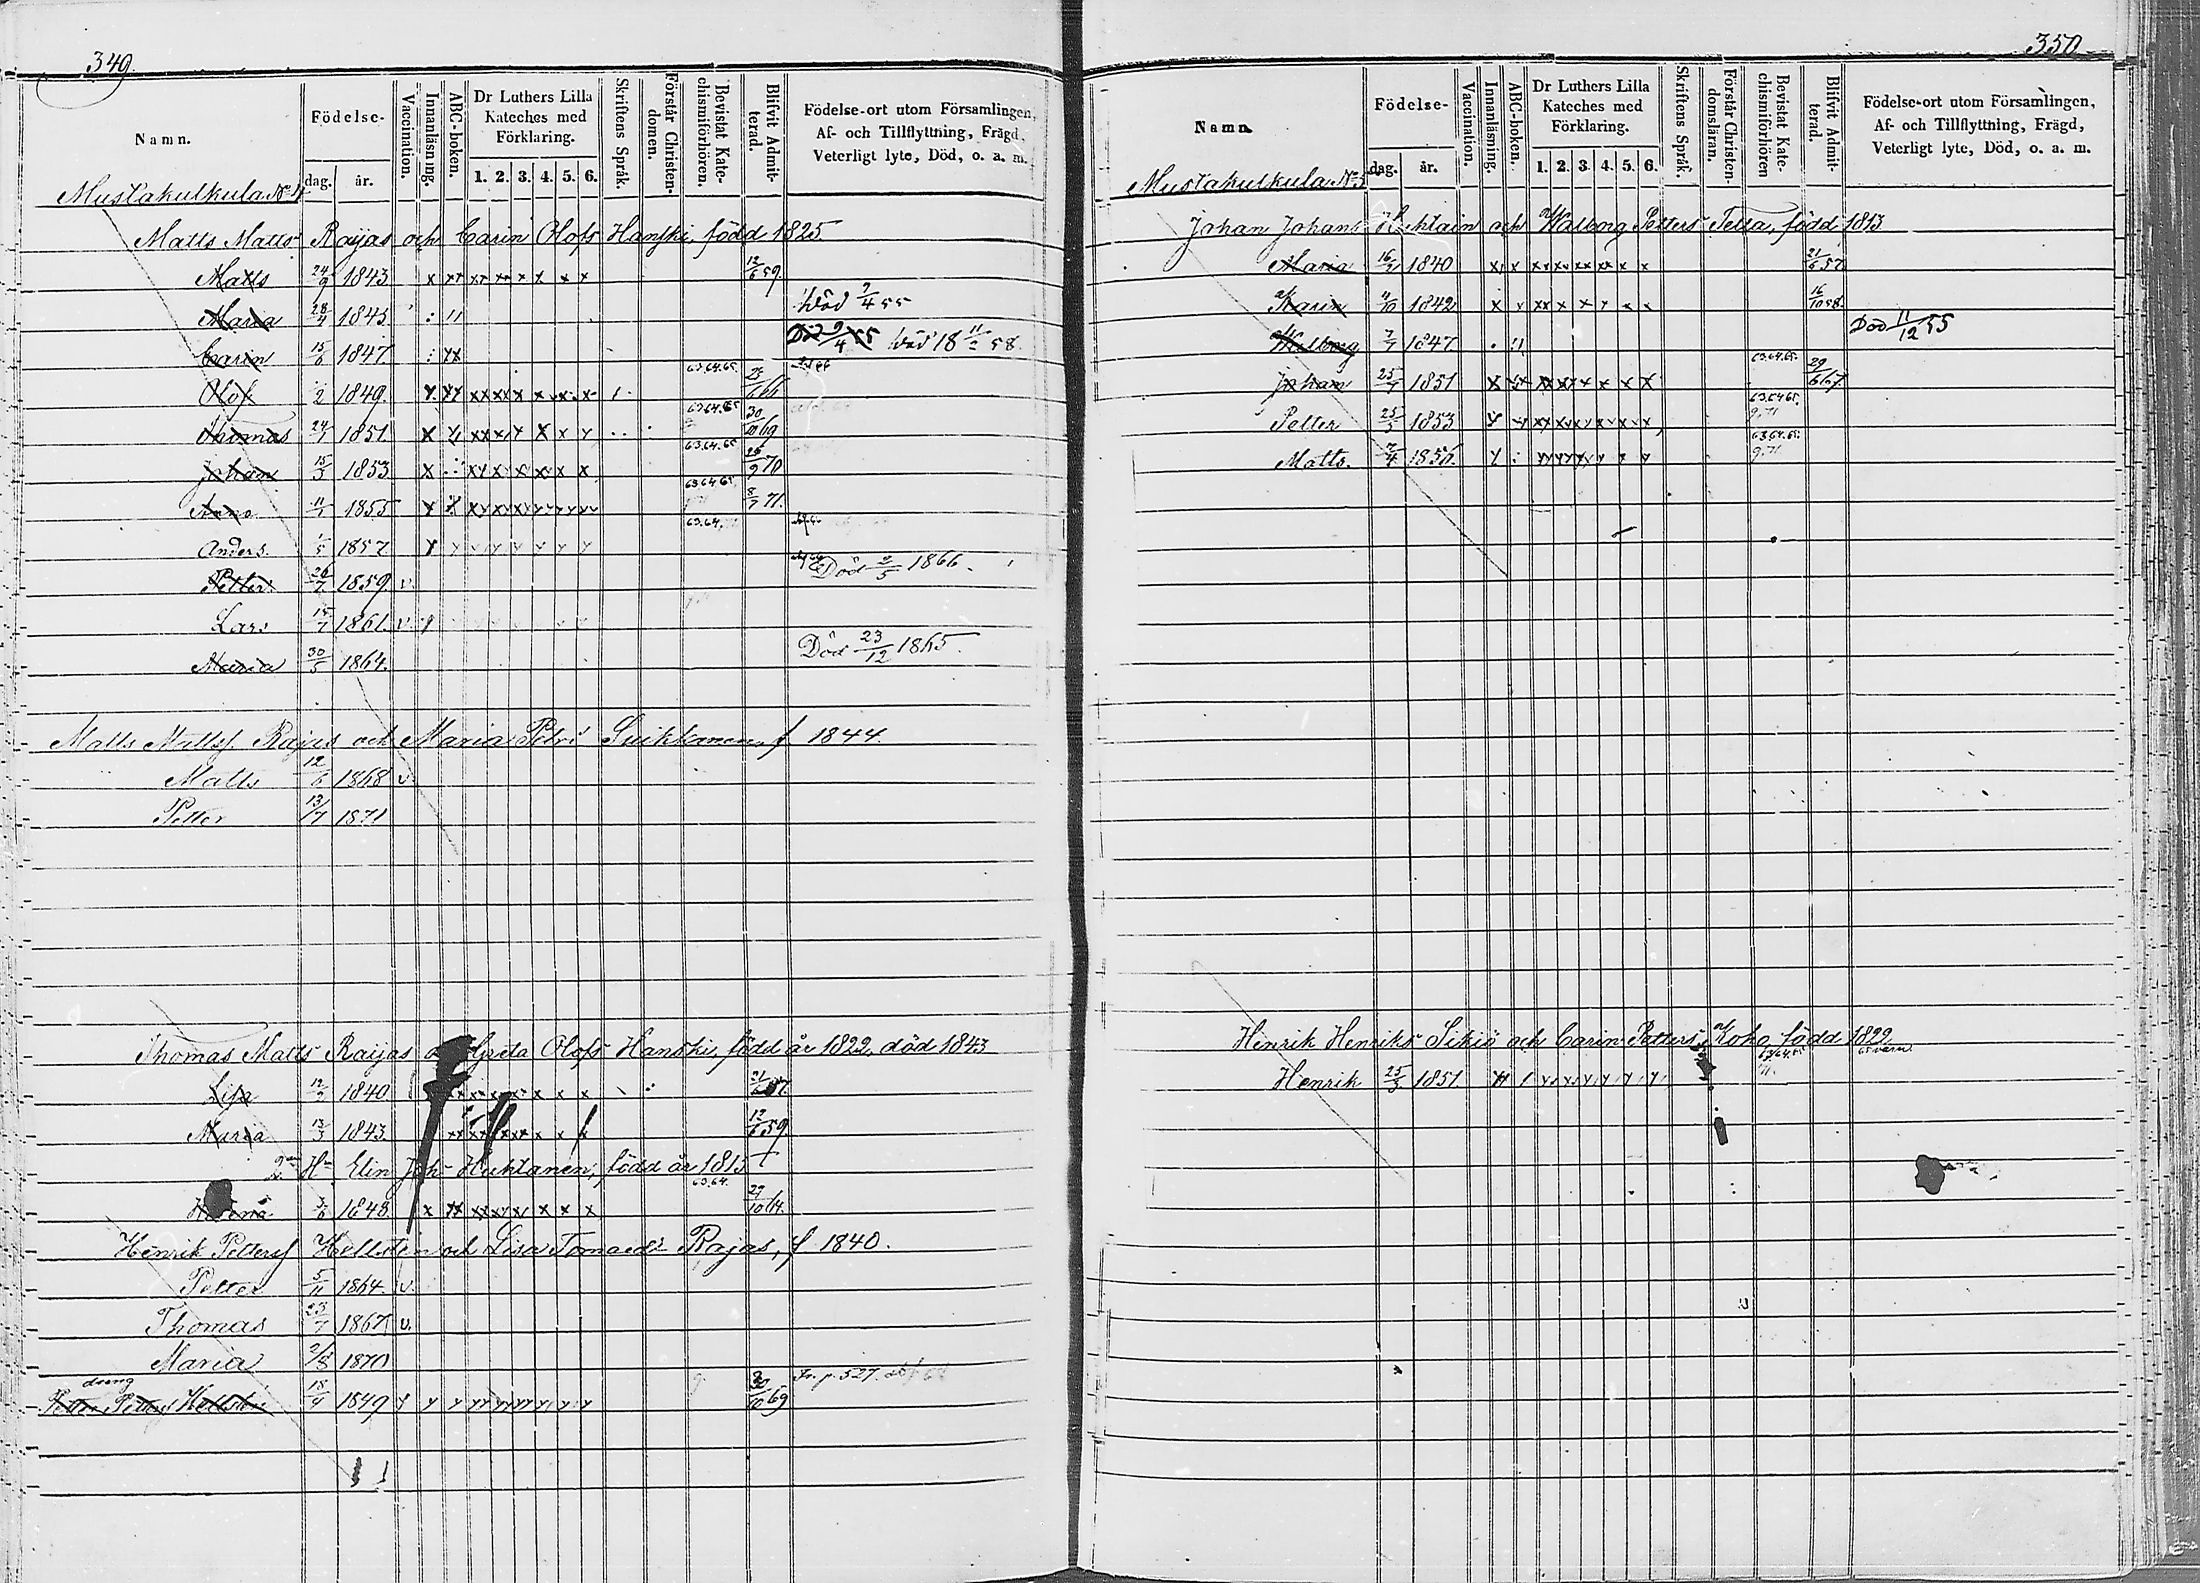 349.
Namn.
Födelse-
dag.
år.
Vaccination.
Innanläsning.
ABC-boken.
Dr Luthers Lilla
Kateches med
Förklaring.
1. 2. 3. 4. 5. 6.
Skriftens Språk.
Förstår Christen-
domen.
Bevistat Kate-
chismiförhören.
Blifvit Admit-
terad.
Födelse-ort utom Församlingen,
Af- och Tillflyttning, Frägd,
Veterligt lyte, Död, o. a. m.
Mustakulkula No 4
Matts Matts Raijas och Carin Olofs Hanski, född 1825
Matts 24/9 1843 12/6 59.
Maria 28/4 1845 död 9/4 55
Carin 15/6 1847 Död 9/4 55 död 18
Olof 1849. 63.64.65.
Thomas 24/1 1851 63.64.65 30/10 69
Johan 15/3 1853 63.64.65 70
Anna 11/1 1855 63.64.65. 71.
Anders. 1/5 1857 63.64.
Petter 26/7 1859. v. Död 2/5 1866.
Lars 15/7 1861. v.
Maria 30/5 1864. Död 23/12 1865.
Matts Mattss. Rajas och Maria Petrs Suikkanen, f 1844.
Matts 12/6 1868 v.
Petter 13/7 1871
Thomas Matts Raijas Greta Olofs Hanski, född år 1822, död 1843
Lisa 12/2 1840 57.
Maria 13/3 1843. 12/6 59.
2. H Elin Joh Huhtanen, född år 1813
1848. 63.64. 29/10 64.
Henrik Petterss Hellsten och Lisa Tomaed Rajas, f 1840.
Petter 5/11 1864. v.
Thomas 23/7 1867 v.
Maria 2/8 1870
dräng
Petter Petterss Hellsten 18/4 1849 30/10 69 Fr. p. 527.
350
Namn.
Födelse-
dag.
år.
Vaccination.
Innanläsning.
ABC-boken.
Dr Luthers Lilla
Kateches med
Förklaring.
1. 2. 3. 4. 5. 6.
Skriftens Språk.
Förstår Christen-
domsläran.
Bevistat Kate-
chismiförhören
Blifvit Admit-
terad.
Födelse-ort utom Församlingen,
Af- och Tillflyttning, Frägd,
Veterligt lyte, Död, o. a. m.
Mustakulkula No
Johan Johans och Walborg Petters Tella, född 1813
Maria 1840 21/6 57
Karin 1842 16/10 58.
Walborg 7/7 1847 Död 11/12 55
Johan 25/7 1851 63.64.65. 29/6 67.
Petter 25/5 1853 63.64.65.
Matts. 7/4 1856. 63.64.65.
Henrik Henriks Sikiö och Carin Petters Koho, född 1822
Henrik 25/3 1851